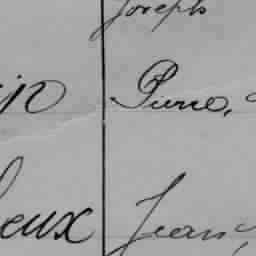 Joseph
in Pierre,
eux Jean,